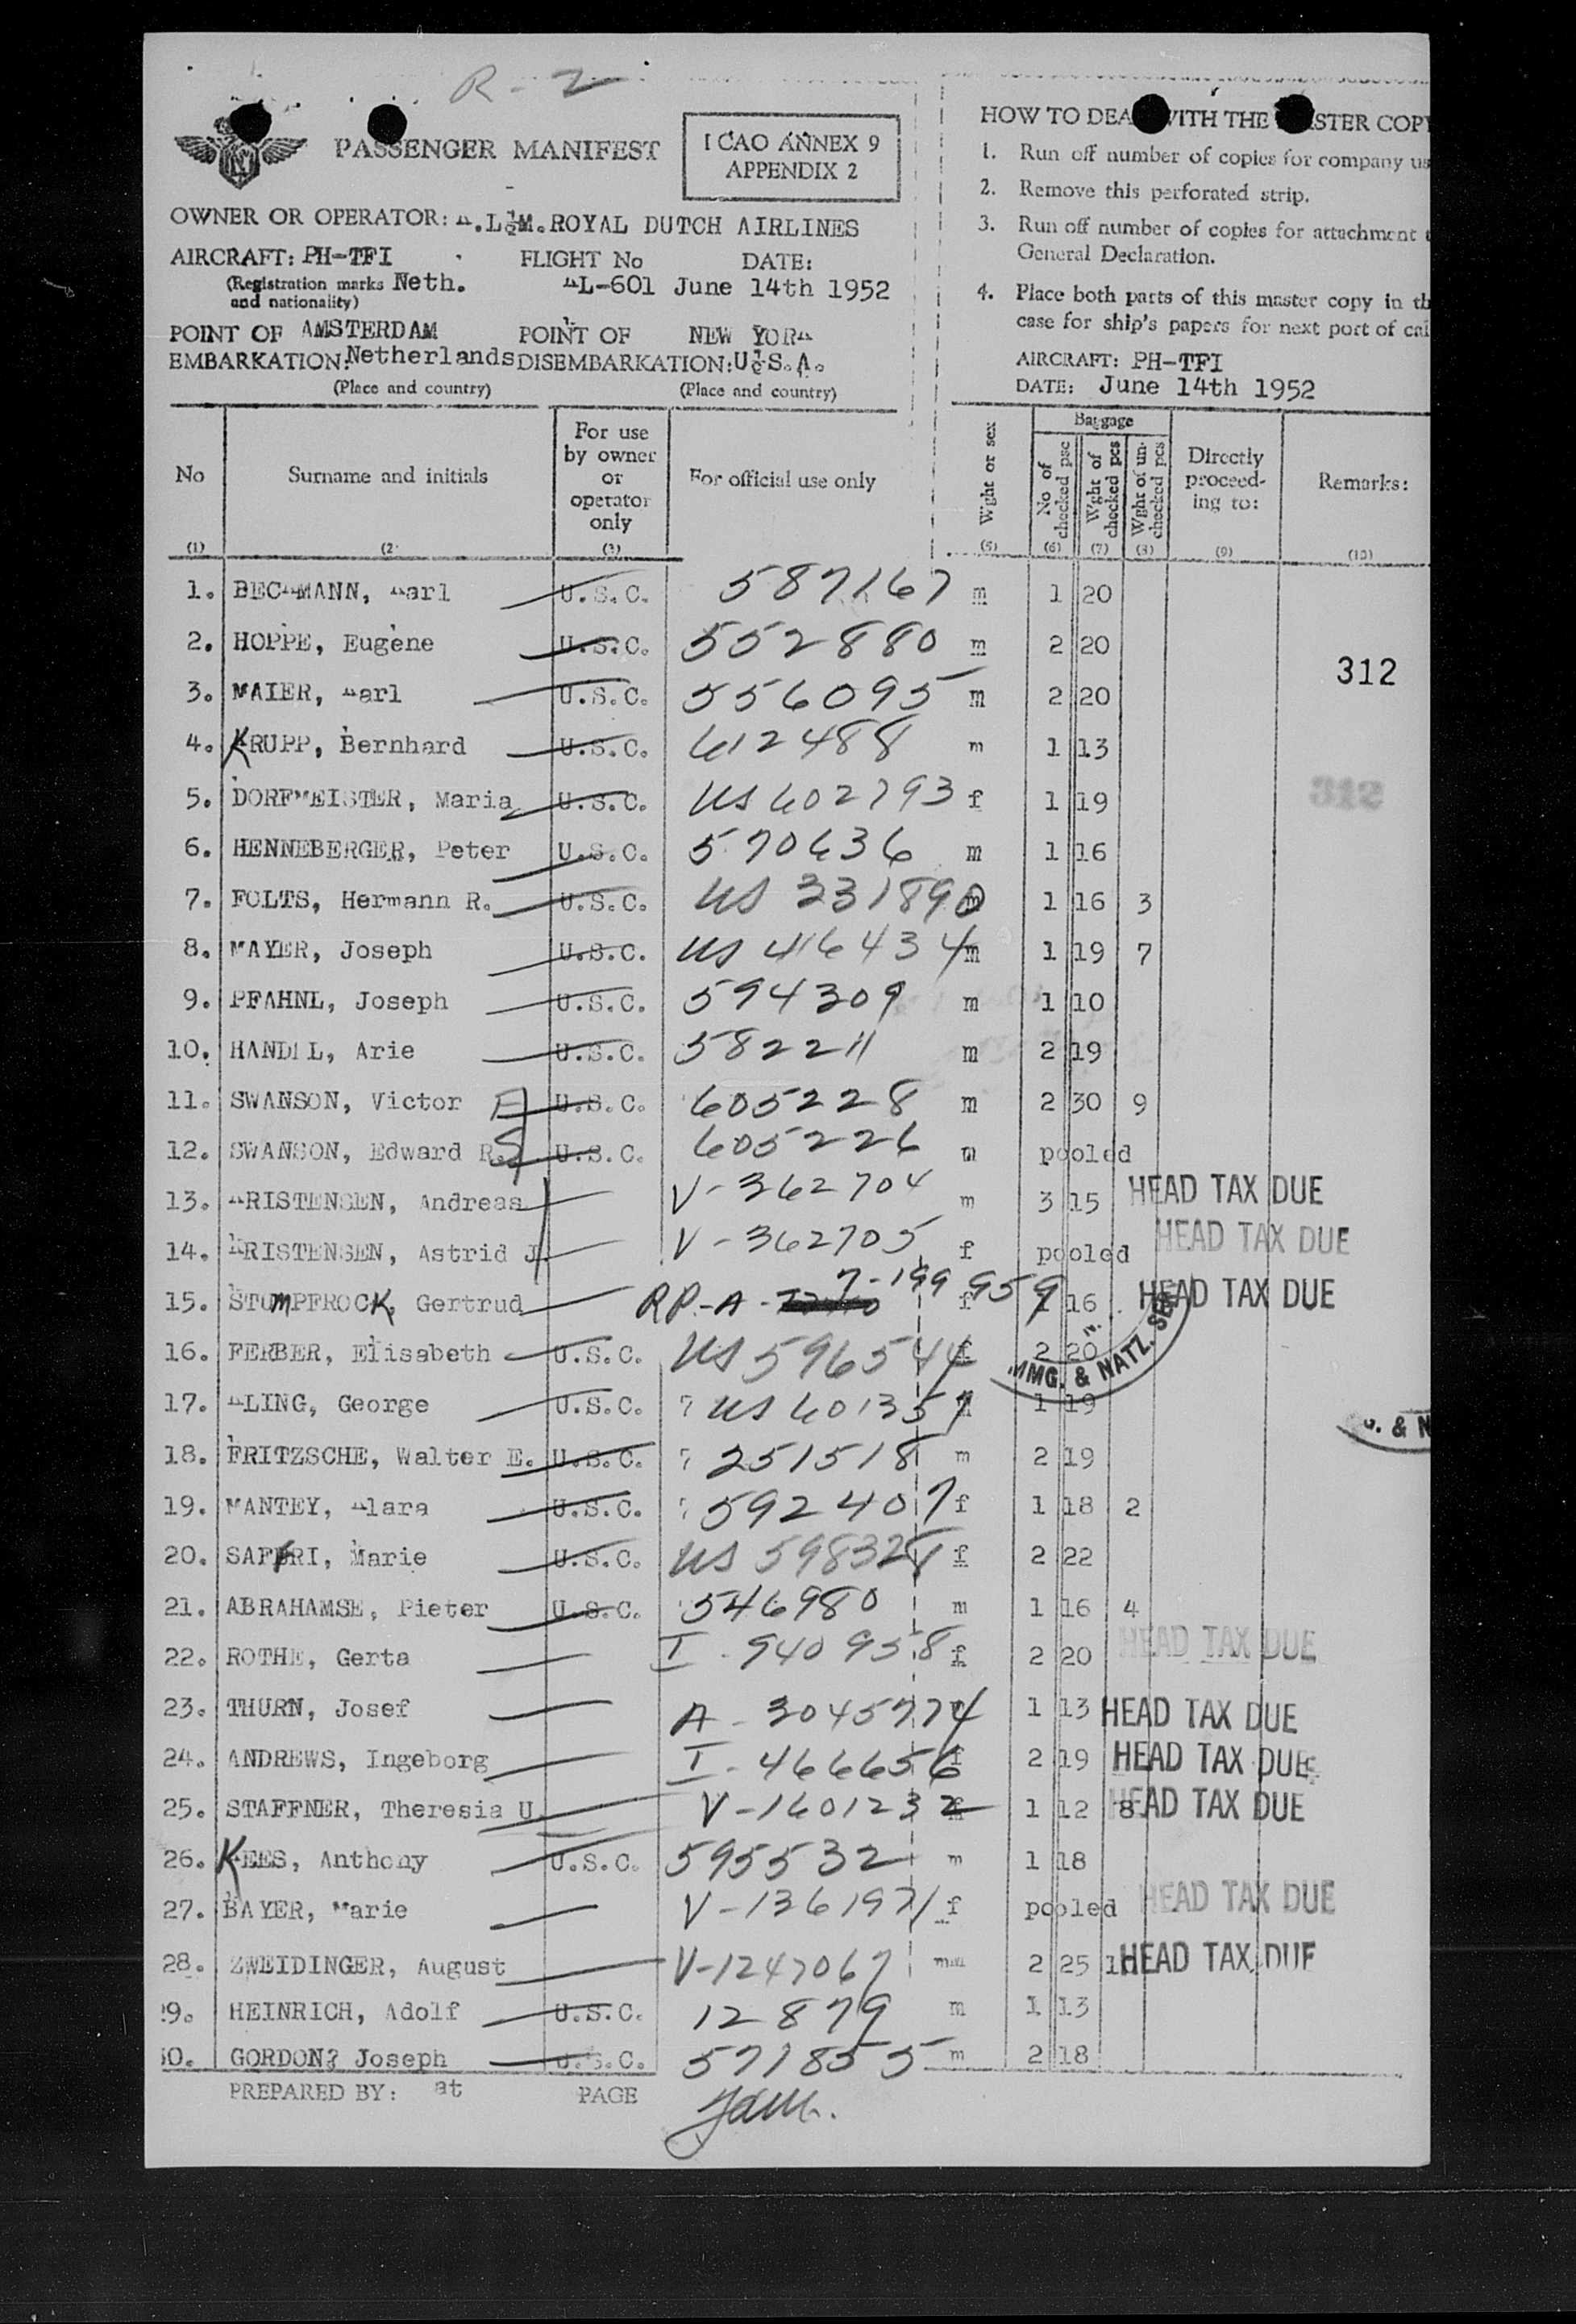 R - 2
PASSENGER MANIFEST
ICAO ANNEX 9
APPENDIX 2
OWNER OR OPERATOR: .L.M. ROYAL DUTCH AIRLINES
AIRCRAFT: PH-TFI FLIGHT No DATE:
(Registration marks and nationality) Neth. L-601 June 14th 1952
POINT OF EMBARKATION: AMSTERDAM Netherlands
POINT OF DISEMBARKATION: NEW YOR U.S.A.
(Place and country) (Place and country)
HOW TO DEA WITH THE STER COP
1. Run off number of copies for company us
2. Remove this perforated strip.
3. Run off number of copies for attachment
General Declaration.
4. Place both parts of this master copy in th
case for ship's papers for next port of cal
AIRCRAFT: PH-TFI
DATE: June 14th 1952
No Surname and initials For use by owner or operator only For official use only Wght or sex Baggage No of checked pse Wght of checked pcs Wght of un-checked pcs Directly proceed-ing to: Remarks:
(1) (2 (3) (5) (6) (7) (8) (9) (10)
1. BEC MANN, arl U.S.C. 587167 m 1 20
2. HOPPE, Eugene U.S.C. 552880 m 2 20
312
3. MAIER, arl U.S.C. 556095 m 2 20
4. KRUPP, Bernhard U.S.C. 612488 m 1 13
5. DORFMEISTER, Maria U.S.C. US 602793 f 1 19
312
6. HENNEBERGER, Peter U.S.C. 570636 m 1 16
7. FOLTS, Hermann R. U.S.C. US 331890 m 1 16 3
8. MAYER, Joseph U.S.C. US 416434 m 1 19 7
9. PFAHNL, Joseph U.S.C. 594309 m 1 10
10. HANDEL, Arie U.S.C. 582211 m 2 19
11. SWANSON, Victor U.S.C. 605228 m 2 30 9
12. SWANSON, Edward R. U.S.C. 605226 m pooled
13. RISTENSEN, Andreas V-362704 m 3 15 HEAD TAX DUE
14. RISTENSEN, Astrid J. V-362705 f pooled HEAD TAX DUE
15. STUMPFROCK, Gertrud RP-A-7-199 959 f 1 16 HEAD TAX DUE
16. FERBER, Elisabeth U.S.C. US 596544 f 2 20
MMG. & NATZ. SER
17. LING, George U.S.C. US 601357 m 1 19
. & N
18. FRITZSCHE, Walter E. U.S.C. 251518 m 2 19
19. MANTEY, lara U.S.C. 592407 f 1 18 2
20. SAFRI, Marie U.S.C. US 598328 f 2 22
21. ABRAHAMSE, Pieter U.S.C. 546980 m 1 16 4
22. ROTHE, Gerta I-940958 f 2 20 HEAD TAX DUE
23. THURN, Josef A-3045774 1 13 HEAD TAX DUE
24. ANDREWS, Ingeborg I-466656 f 2 19 HEAD TAX DUE
25. STAFFNER, Theresia U. V-1601232 1 12 8 HEAD TAX DUE
26. KEES, Anthony U.S.C. 595532 m 1 18
27. BAYER, Marie V-1361971 f pooled HEAD TAX DUE
28. ZWEIDINGER, August V-1247067 m 2 25 1 HEAD TAX DUE
29. HEINRICH, Adolf U.S.C. 12879 m 1 13
30. GORDON? Joseph U.S.C. 571855 m 2 18
PREPARED BY: at PAGE